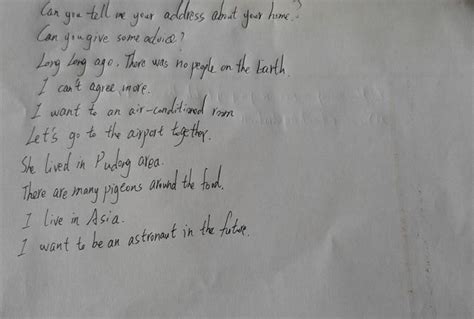 Can you tell me your address about your home.?
Can you give some advice?
Long long ago, There was no people on the Earth.
I can't agree more.
I want to an air-conditioned room
Let's go to the airport together.
She lived in Pudong area.
There are many pigeons around the
I live in Asia.
I want to be an astronaut in the future.